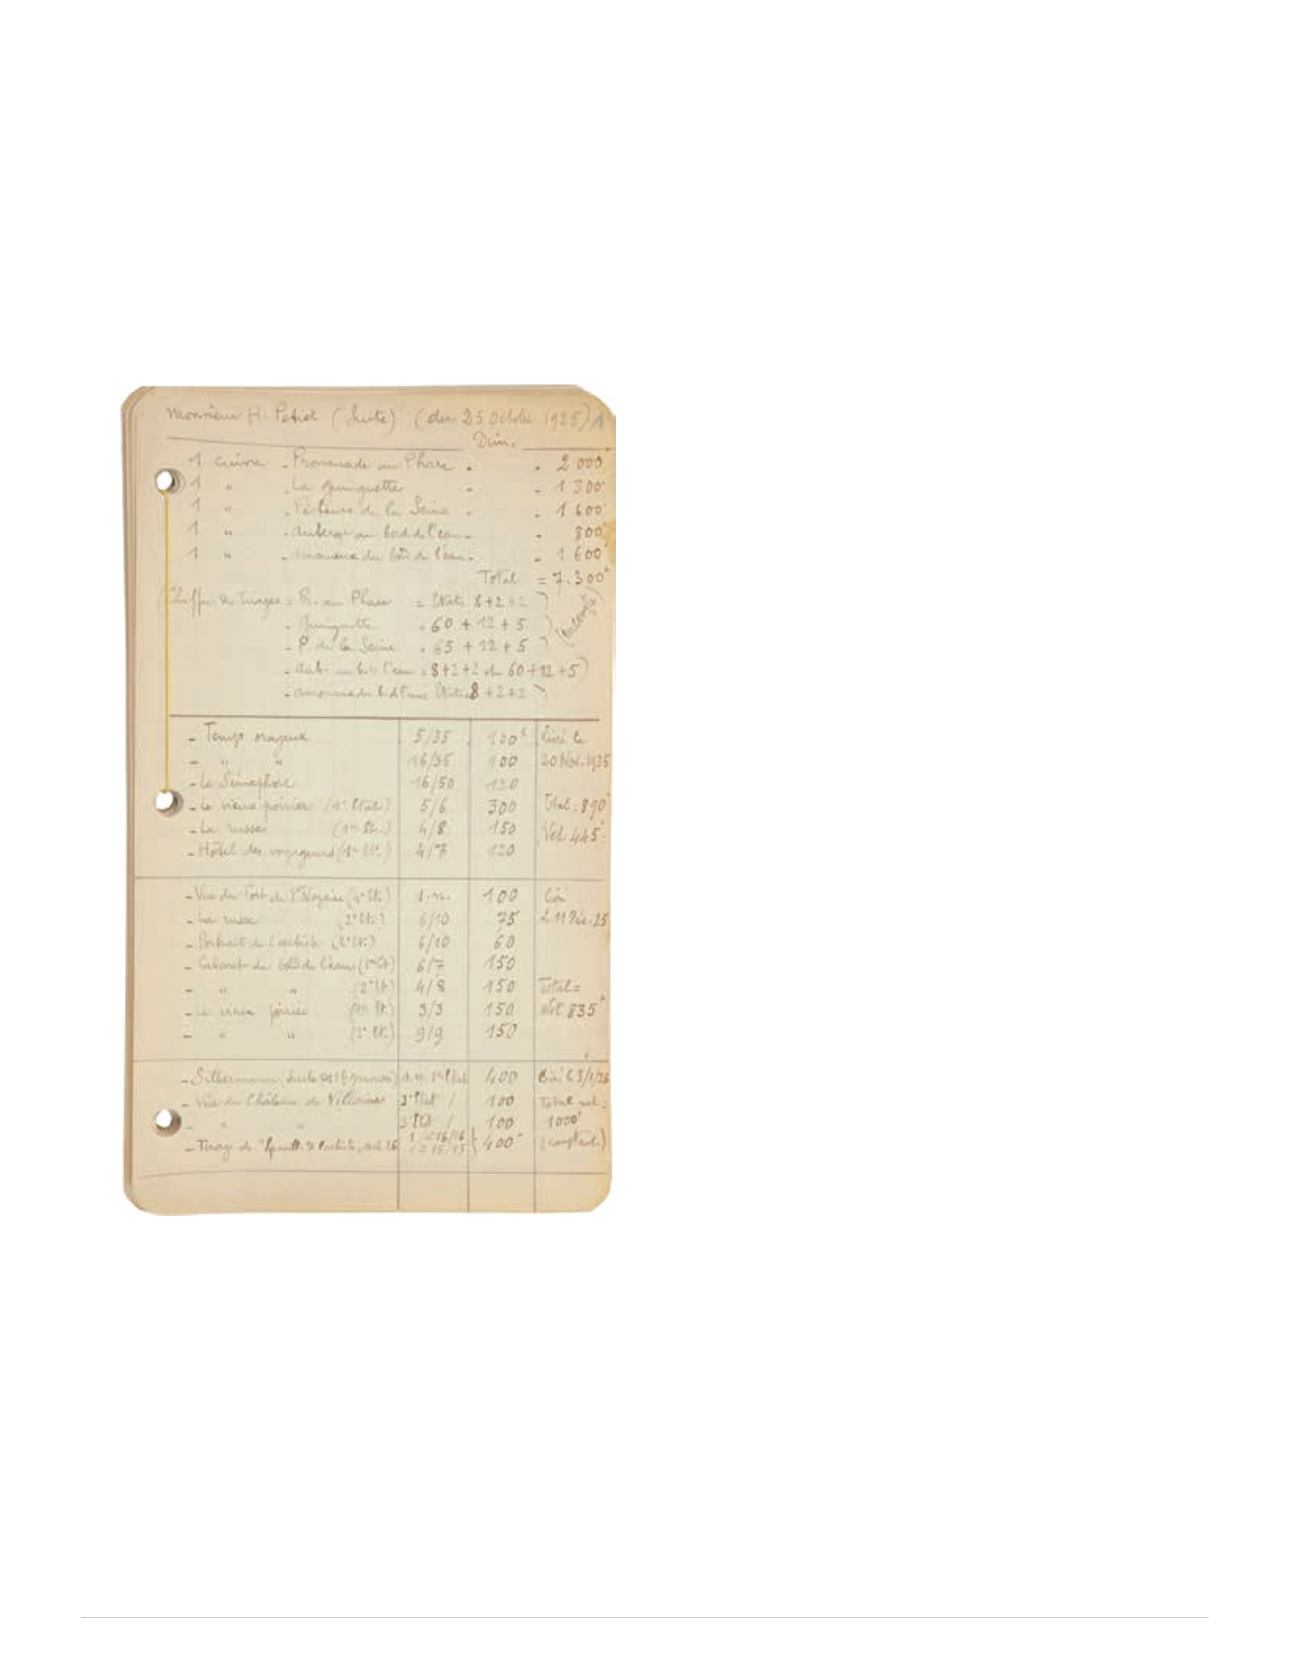 Monsieur H. Petiet (Suite) (du 25 Octobre 1925) 1
Dim.
1 cuivre - Promenade au Phare - - 2 000
1 " - La Guinguette - - 1 300
1 " - Pêcheurs de la Seine - - 1 600
1 " - auberge au bord de l'eau - - 800
1 " - amoureux du bord de l'eau - - 1 600
Total = 7.300
(Chiffre des tirages = Pr. au Phare = 8+2+2)
- Guinguette = 60 + 12 + 5)
- P. de la Seine = 65 + 12 + 5)
- aub. au b. de l'eau = 8+2+2 et 60+12+5)
- amoureux du b. de l'eau 8+2+2)
- Temps orageux 5/35 100 Livré le
- " " 16/35 100 20 Nov. 1925
- Le Sémaphore 16/50 120
- Le vieux poirier (1er Etat) 5/6 300 Total = 890
- La russe (1er Et.) 4/8 150 Net 445
- Hôtel des voyageurs (1er Et.) 4/7 120
- Vue du Port de St Nazaire 100 Livré
- La russe (2e Et.) 6/10 75 le 11 Déc. 25
- Portrait de l'artiste (2e Et.) 6/10 60
- Cabaret du bord de l'eau (1er Et) 6/7 150
- " " (2e Et.) 4/8 150 Total =
- Le vieux poirier 3/3 150 Net 835
- " " 9/9 150
- Silbermann (suite des 16 400 Livré le 3/1/26
- Vue du Château de Villaines 3e Etat / 100 Total net =
- " " 3e Etat / 100 1000
- Tirage de 1 à 16/16 400 (comptant)
1 à 15/15